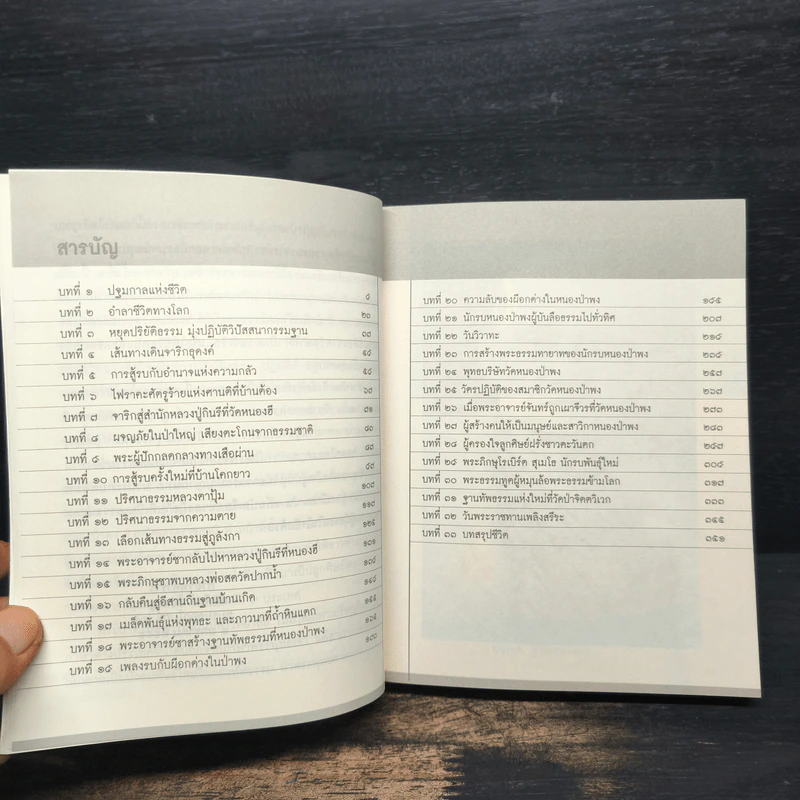 สารบัญ
บทที่ ๑ ปฐมกาลแห่งชีวิต ๙
บทที่ ๒ อำลาชีวิตทางโลก ๒๓
บทที่ ๓ หยุดปริยัติธรรม มุ่งปฏิบัติวิปัสสนากรรมฐาน
บทที่ ๔ เส้นทางเดินจาริกธุดงค์
บทที่ ๕ การสู้รบกับอำนาจแห่งความกลัว
บทที่ ๖ ไฟราคะศัตรูร้ายแห่งศานติที่บ้านต้อง
บทที่ ๗ จาริกสู่สำนักหลวงปู่กินรีที่วัดหนองฮี ๗๑
บทที่ ๘ ผจญภัยในป่าใหญ่ เสียงตะโกนจากธรรมชาติ
บทที่ ๙ พระผู้ปักกลดกลางทางเสือผ่าน
บทที่ ๑๐ การสู้รบครั้งใหม่ที่บ้านโคกยาว
บทที่ ๑๑ ปริศนาธรรมหลวงตาปุ้ม
บทที่ ๑๒ ปริศนาธรรมจากความตาย
บทที่ ๑๓ เลือกเส้นทางธรรมสู่ภูลังกา
บทที่ ๑๔ พระอาจารย์ชากลับไปหาหลวงปู่กินรีที่หนองฮี
บทที่ ๑๕ พระภิกษุชาพบหลวงพ่อสดวัดปากน้ำ
บทที่ ๑๖ กลับคืนสู่อีสานถิ่นฐานบ้านเกิด
บทที่ ๑๗ เมล็ดพันธุ์แห่งพุทธะ และภาวนาที่ถ้ำหินแตก
บทที่ ๑๘ พระอาจารย์ชาสร้างฐานทัพธรรมที่หนองป่าพง
บทที่ ๑๙ เพลงรบกับผีอกค่างในป่าพง
บทที่ ๒๐ ความลับของผีอกค่างในหนองป่าพง ๑๙๕
บทที่ ๒๑ นักรบหนองป่าพงผู้บันลือธรรมไปทั่วทิศ ๒๐๗
บทที่ ๒๒ วันวิวาทะ
บทที่ ๒๓ การสร้างพระธรรมทายาทของนักรบหนองป่าพง
บทที่ ๒๔ พุทธบริษัทวัดหนองป่าพง
บทที่ ๒๕ วัตรปฏิบัติของสมาชิกวัดหนองป่าพง ๒๖๗
บทที่ ๒๖ เมื่อพระอาจารย์จันทร์ถูกเผาจีวรที่วัดหนองป่าพง
บทที่ ๒๗ ผู้สร้างคนให้เป็นมนุษย์และสาวิกาหนองป่าพง
บทที่ ๒๘ ผู้ครองใจลูกศิษย์ฝรั่งชาวตะวันตก
บทที่ ๒๙ พระภิกษุโรเบิร์ต สุเมโธ นักรบพันธุ์ใหม่ ๓๐๕
บทที่ ๓๐ พระธรรมทูตผู้หมุนล้อพระธรรมข้ามโลก ๓๑๗
บทที่ ๓๑ ฐานทัพธรรมแห่งใหม่ที่วัดป่าจิตตวิเวก ๓๓๓
บทที่ ๓๒ วันพระราชทานเพลิงสรีระ ๓๔๕
บทที่ ๓๓ บทสรุปชีวิต ๓๕๑